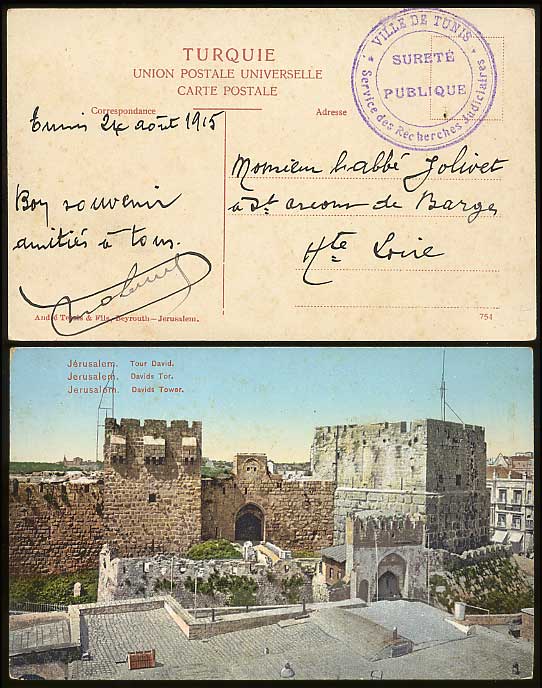 TURQUIE
UNION POSTALE UNIVERSELLE
CARTE POSTALE
Correspondance
Adresse
VILLE DE TUNIS
SURETÉ
PUBLIQUE
Service des Recherches Judiciaires
Tunis 24 août 1915
Bon souvenir
amitiés à tous.
Monsieur l'abbé Jolivet
à St arcons de Barges
Hte Loire
André Terzis & Fils, Beyrouth—Jerusalem.
754
Jérusalem. Tour David.
Jerusalem. Davids Tor.
Jerusalem. Davids Tower.